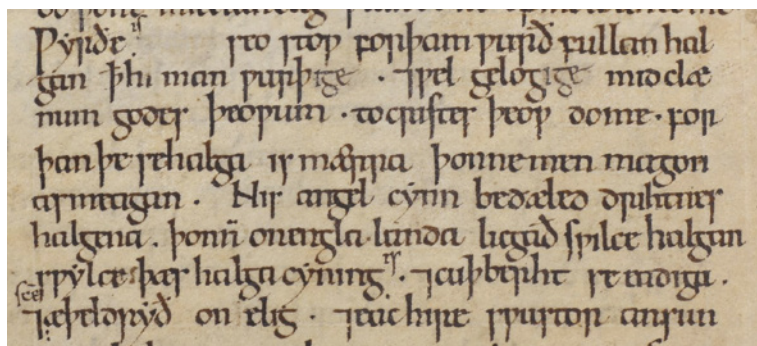 Ƿyrðe is seo stoƿ forþam ƿurð fullan hal
gan ꝥ hi man ƿurþige · ⁊ ƿel gelogige mid clæ
num godes þeoƿum · to cristes þeoƿ dome · for
þan þe se halga is mærra þonne men magon
asmeagan . Nis angel cynn bedæled drihtnes
halgena . þonn̄ on engla landa licgað sƿilce halgan
sƿylce þæs halga cyning is . ⁊ cuþberht se eadiga .
⁊ sc̄e æþeldryð on elig . ⁊ eac hire sƿustor ansun